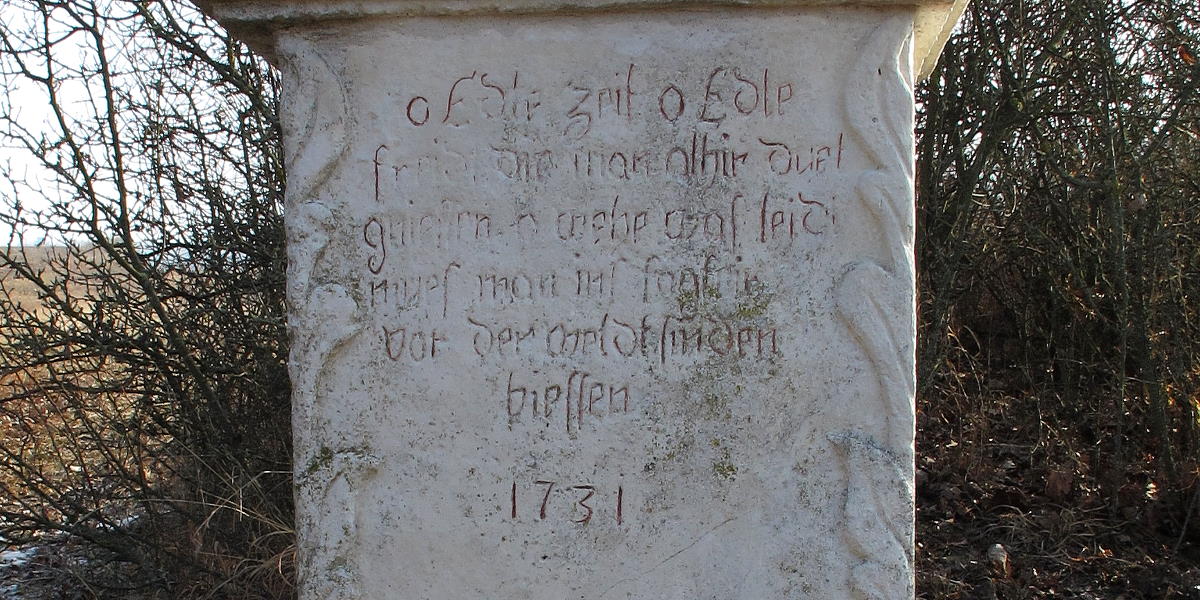 o Edle zeit o Edle
freidt die man alhir duet
gniessen o wehe was leidt
mues man ins fagfeir
vor der weldt sinden
biessen
1731